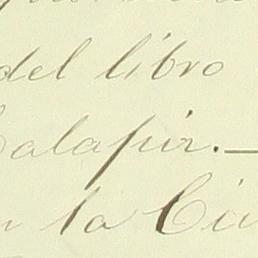 del libro
Calapir.—
la Ciu